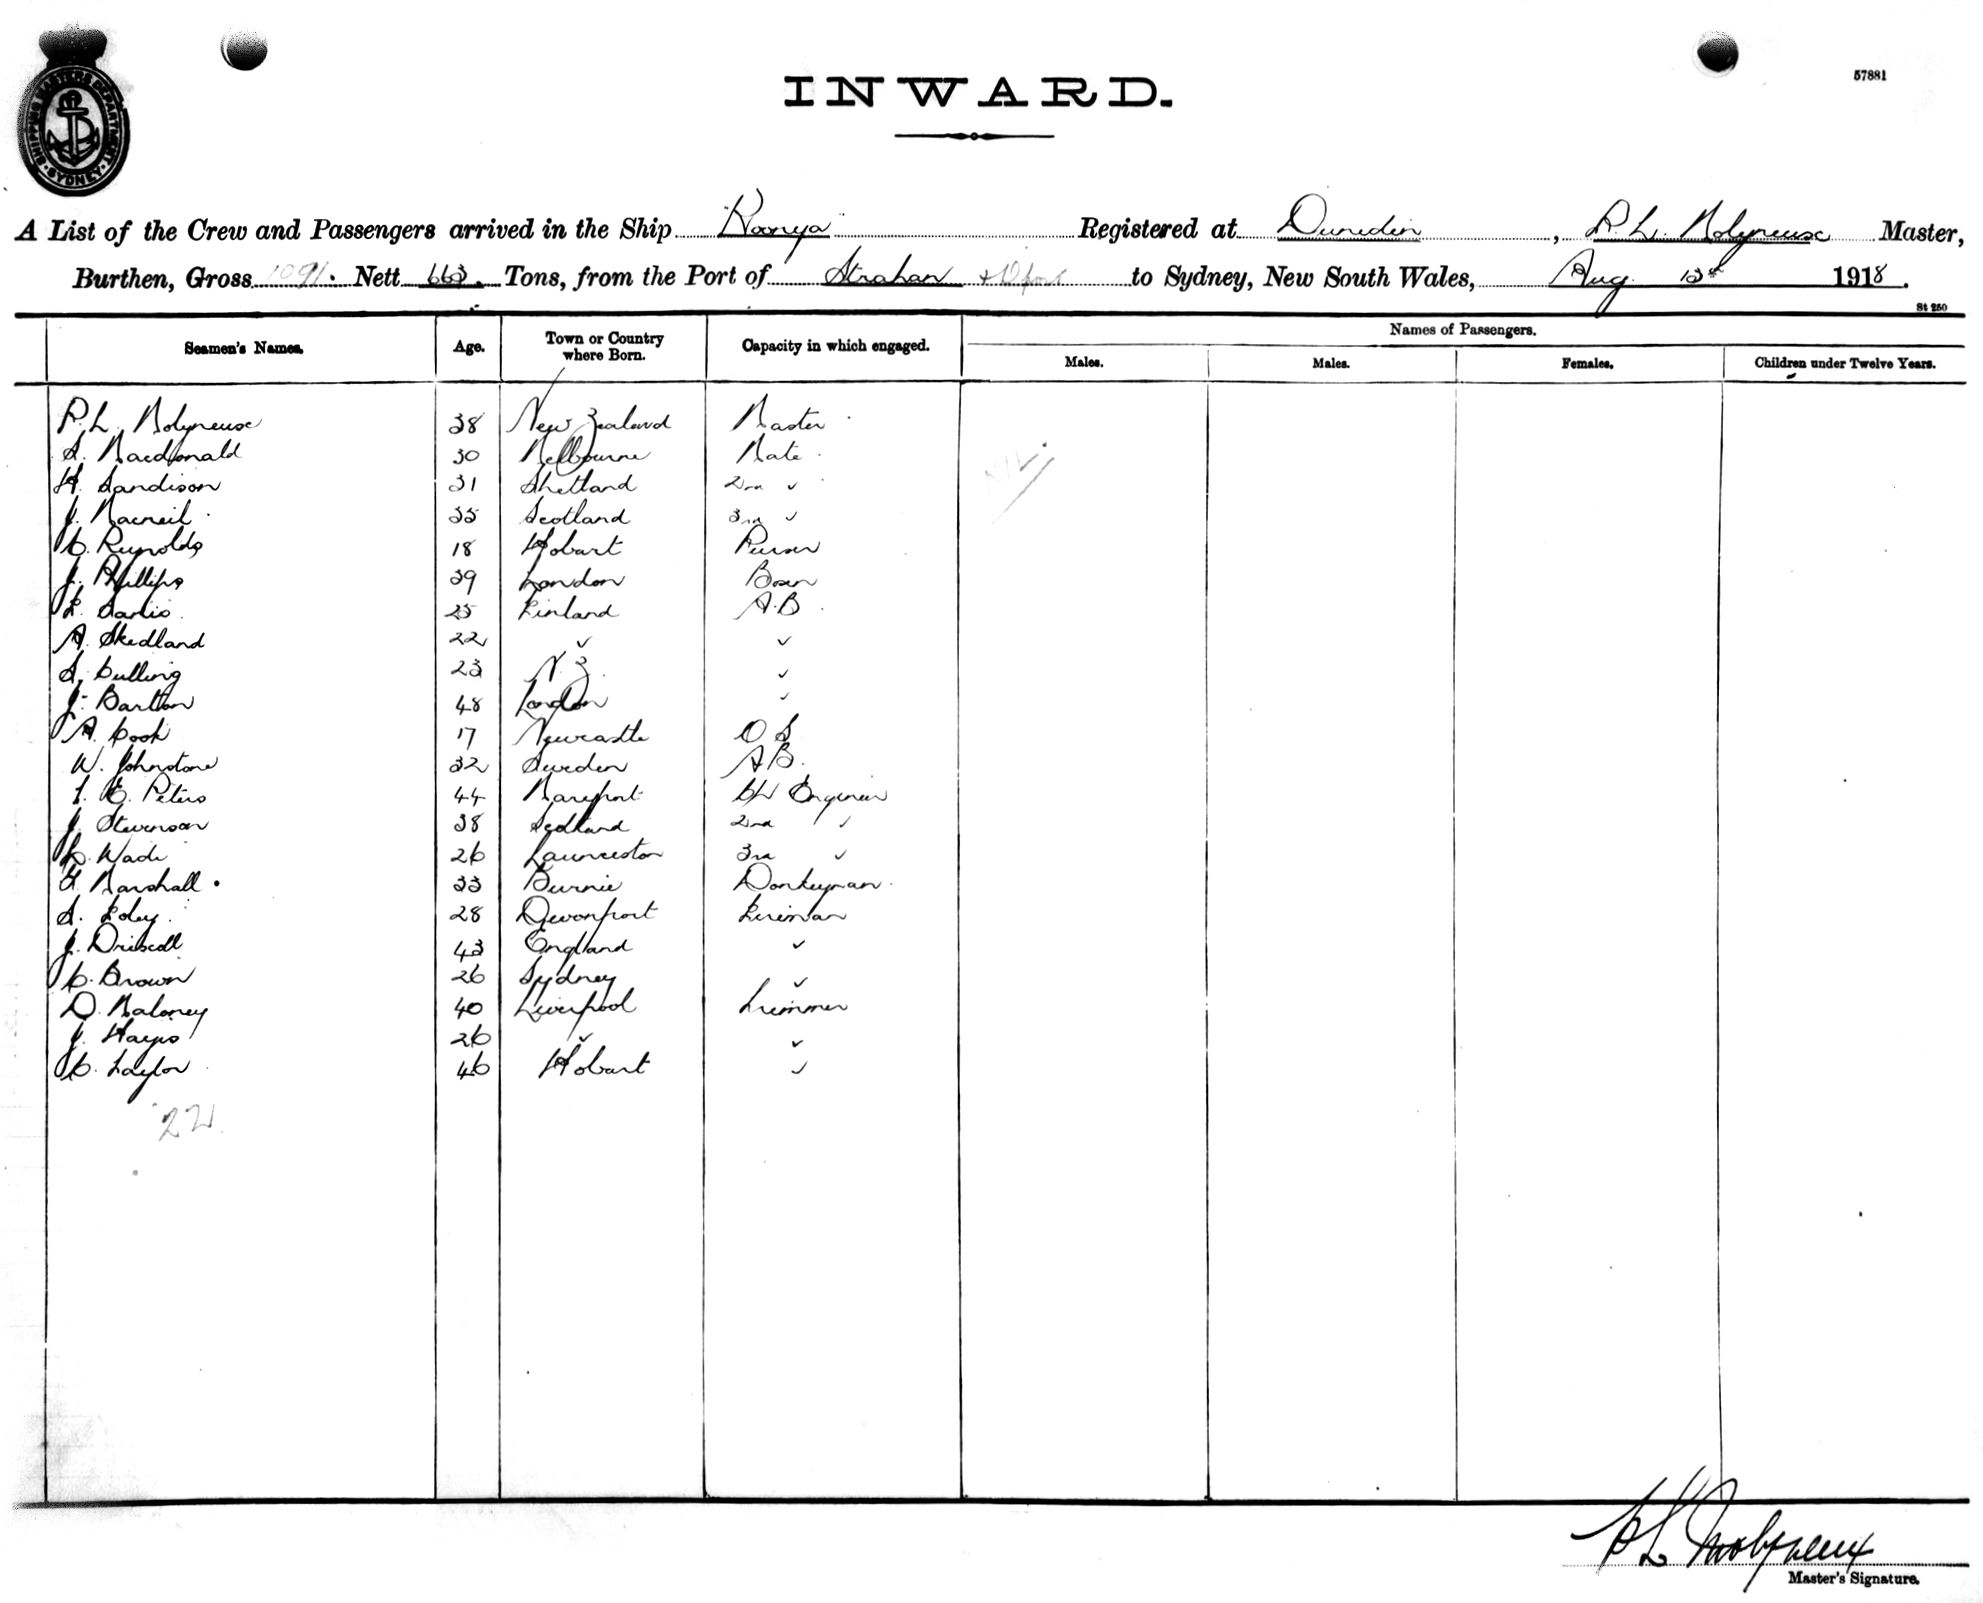 SHIPPING MASTERS DEPARTMENT SYDNEY
57881
INWARD.
A List of the Crew and Passengers arrived in the Ship Koonya Registered at Dunedin, P. L. Molyneux Master,
Burthen, Gross 1091. Nett 663. Tons, from the Port of Strahan & D'port to Sydney, New South Wales, Aug 1918.
St 250
Seamen's Names. Age. Town or Country where Born. Capacity in which engaged. Names of Passengers.
Males. Males. Females. Children under Twelve Years.
P. L. Molyneux 38 New Zealand Master
S. Macdonald 30 Melbourne Mate
H. Sandison 31 Shetland 2nd ✓
J. Macneil 35 Scotland 3rd ✓
C. Reynolds 18 Hobart Purser
J. Phillips 39 London Bosn
25 Finland A.B.
A. Skedland 22 ✓ ✓
S. Culling 23 N.Z. ✓
J. Barton 48 London ✓
A. Cook 17 Newcastle O S
W. Johnstone 32 Sweden A B.
E. Peters 44 Maryport Ch Engineer
J. Stevenson 38 Scotland 2nd ✓
C. Wade 26 Launceston 3rd ✓
Marshall. 33 Burnie Donkeyman.
S. Foley. 28 Devonport Fireman
J. Driscoll 43 England ✓
C. Brown 26 Sydney ✓
D. Maloney 40 Liverpool Trimmer
J. Hayes 26 ✓ ✓
C. Taylor 46 Hobart ✓
NIL.
22
P L Molyneux
Master's Signature.